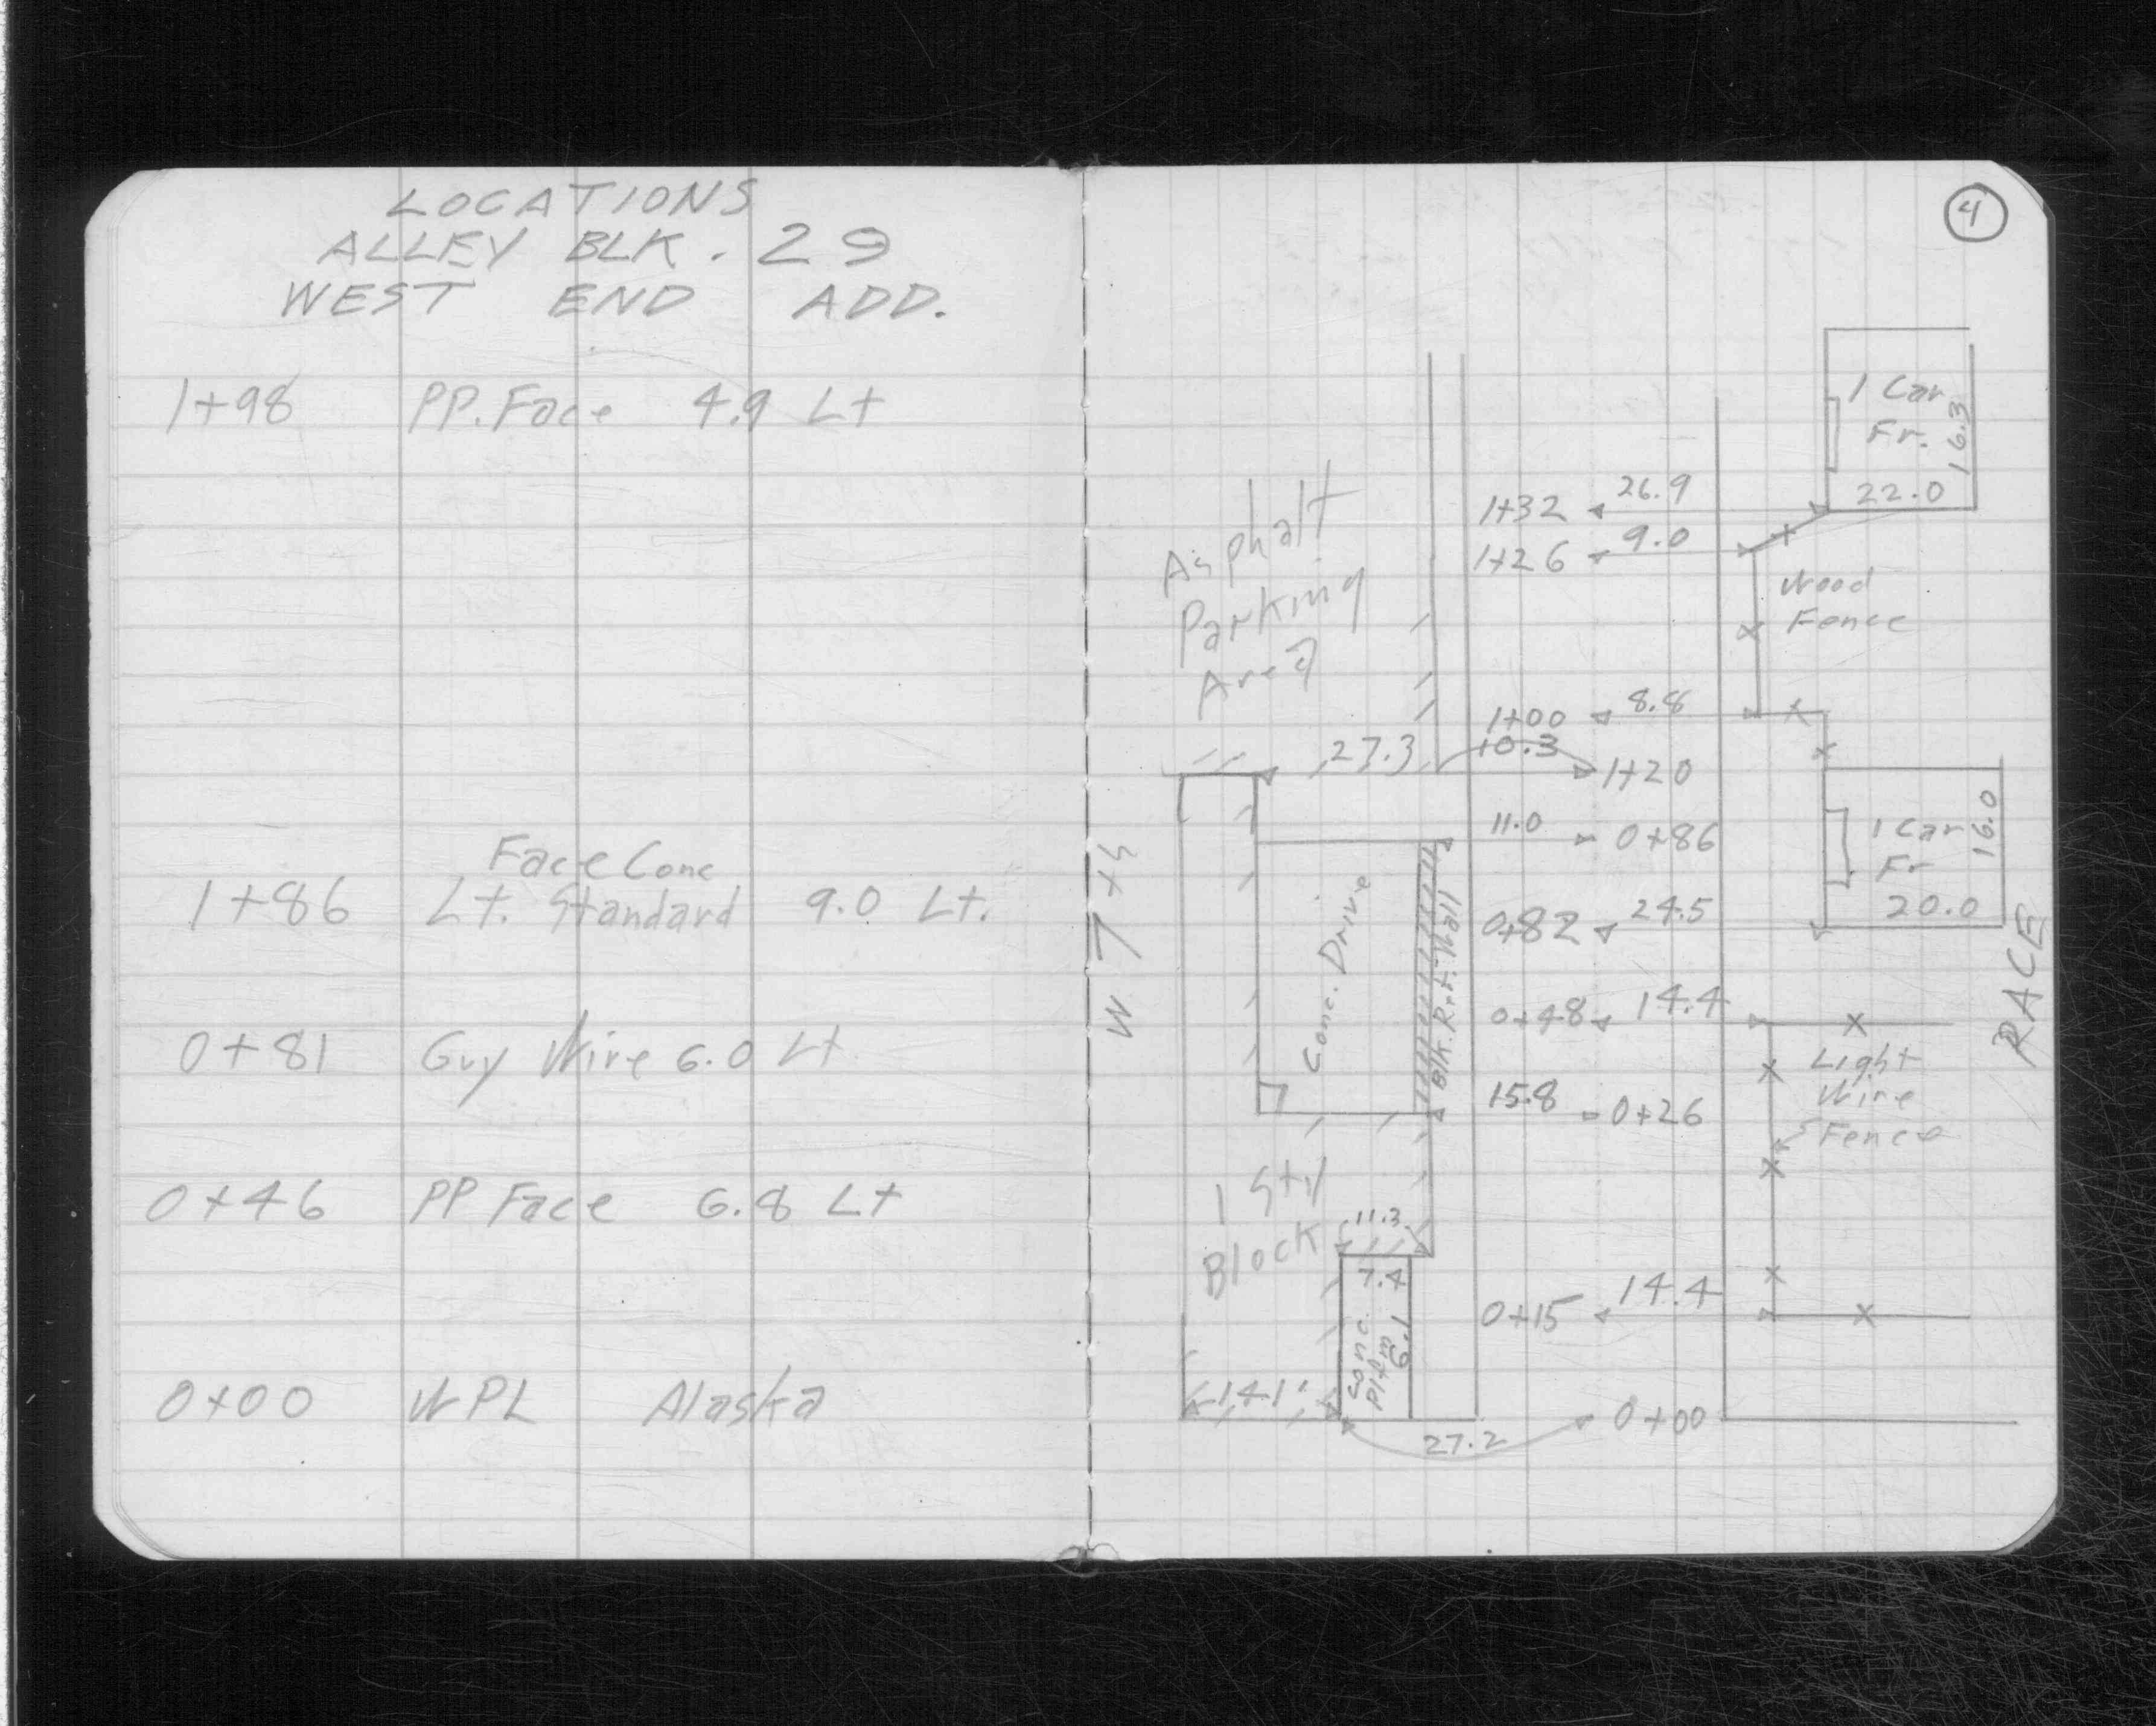 LOCATIONS
ALLEY BLK. 29
WEST END ADD.
1+98 PP. Face 4.9 Lt
Face Conc
1+86 Lt. Standard 9.0 Lt.
0+81 Guy Wire 6.0 Lt
0+46 PP Face 6.8 Lt
0+00 W PL Alaska
4
1 Car
Fr.
16.3
22.0
1+32 26.9
1+26 9.0
Asphalt
Parking
Area
Wood
Fence
1+00 8.8
27.3
10.3
1+20
11.0 0+86
1 Car
Fr
16.0
20.0
W 7th
Conc. Drive
Blk. Ret. Wall
0+82 24.5
RACE
0+48 14.4
Light
Wire
Fence
15.8 0+26
1 Sty
Block
11.3
7.4
Conc.
Pltfm
0+15 14.4
14.1'
27.2
0+00